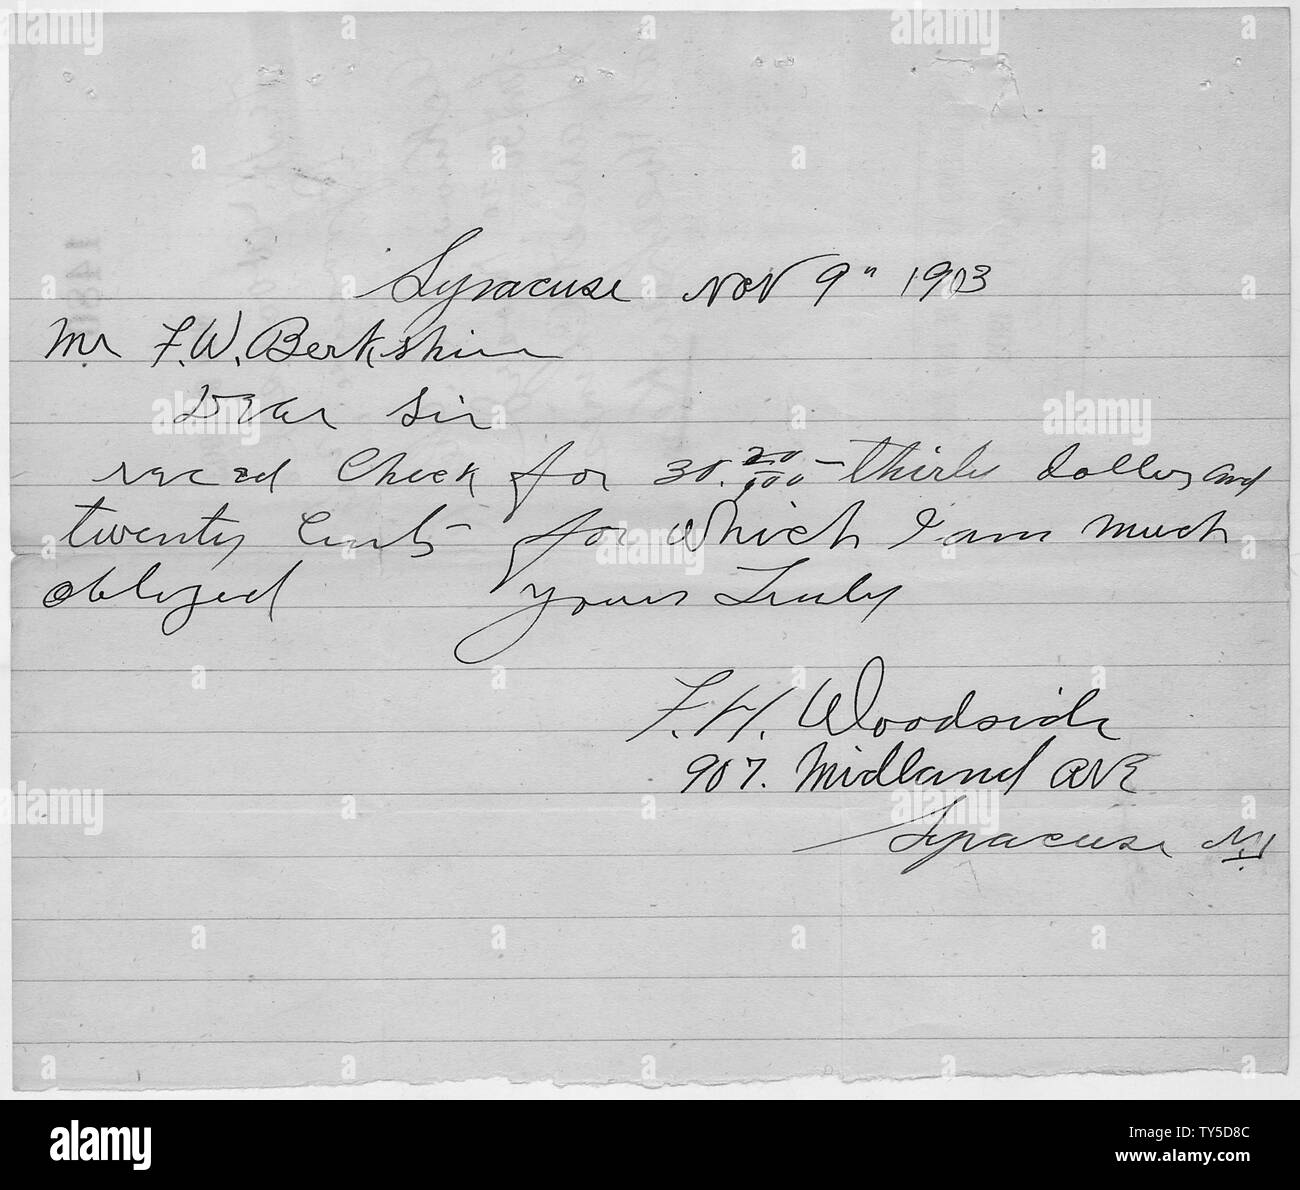 Syracuse Nov 9" 1903
Mr F.W. Berkshire
Dear Sir
reced Check for 30. 20/100 - thirty dollars and
twenty Cents for which I am much
obliged yours Truly
F.H. Woodside
907. Midland AVE
Syracuse NY
1480
alamy
Image ID: TY5D8C
www.alamy.com